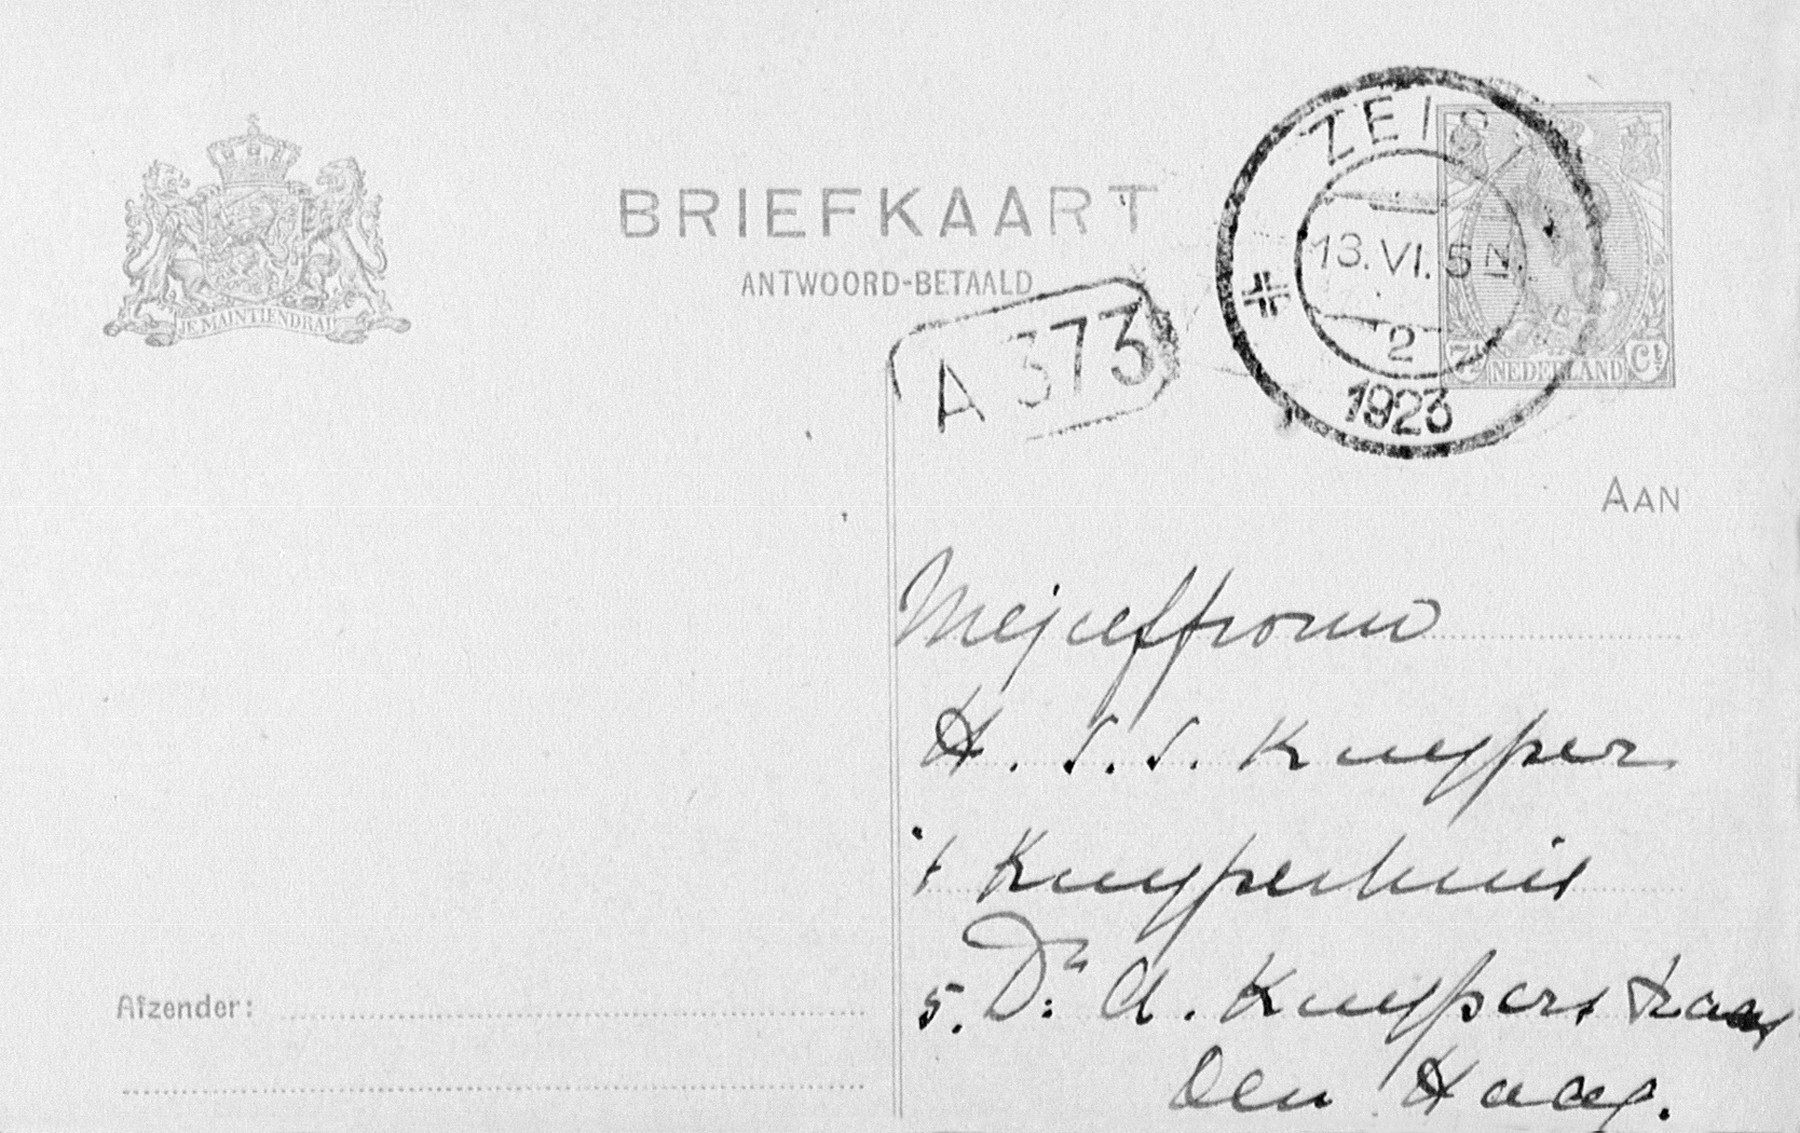 BRIEFKAART
ANTWOORD-BETAALD
JE MAINTIENDRAI
A 373
ZEIST
13.VI. 5 N.
2
1923
7½ NEDERLAND Ct
AAN
Mejuffrouw
H. S. S. Kuyper
't Kuyperhuis
5. Dr. A. Kuyperstraat
Den Haag.
Afzender: